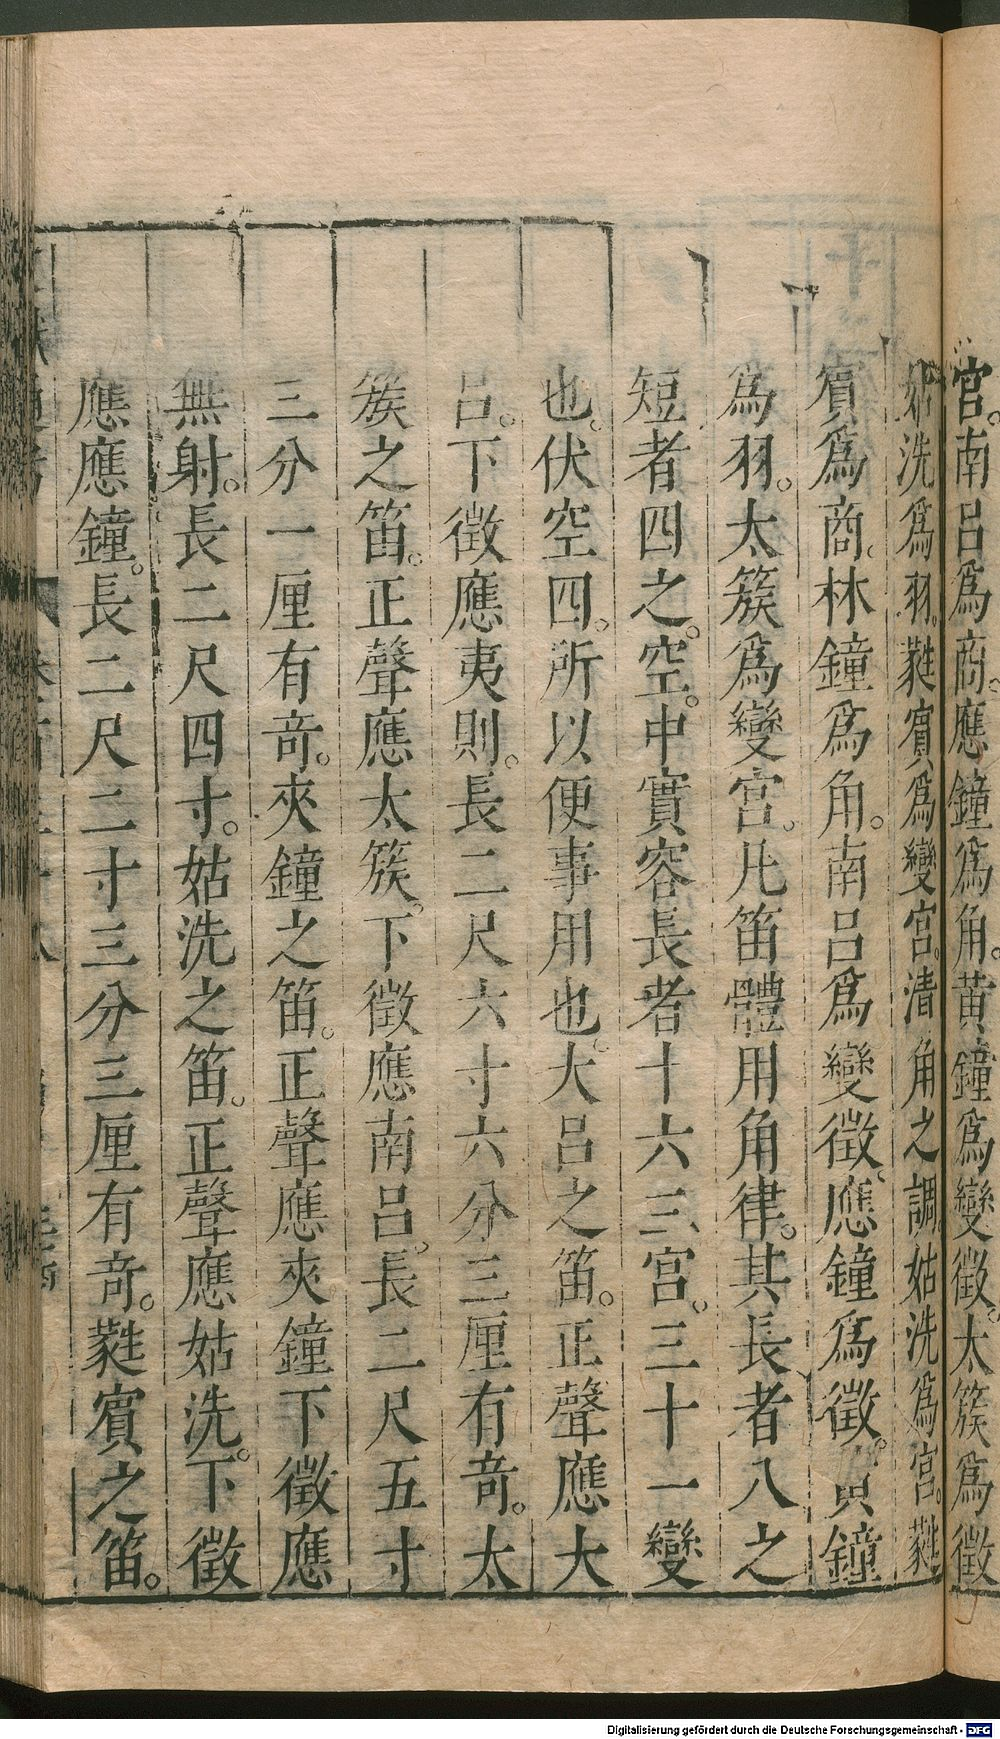 宮。南呂爲商。應鐘爲角。黃鐘爲變徵。太簇爲徵
姑洗爲羽。蕤賓爲變宮。清角之調。姑洗爲宮。蕤
賓爲商。林鐘爲角。南呂爲變徵。應鐘爲徵。鐘
爲羽。太簇爲變宮。凡笛體用角律。其長者八之
短者四之。空。中實容長者十六三宮。三十一變
也。伏空四。所以便事用也。大呂之笛。正聲應大
呂。下徵應夷則。長二尺六寸六分三厘有竒。太
簇之笛。正聲應太簇。下徵應南呂。長二尺五寸
三分一厘有竒。夾鐘之笛。正聲應夾鐘下徵應
無射。長二尺四寸。姑洗之笛。正聲應姑洗。下徵
應應鐘。長二尺二寸三分三厘有竒。蕤賓之笛。
Digitalisierung gefördert durch die Deutsche Forschungsgemeinschaft - DFG